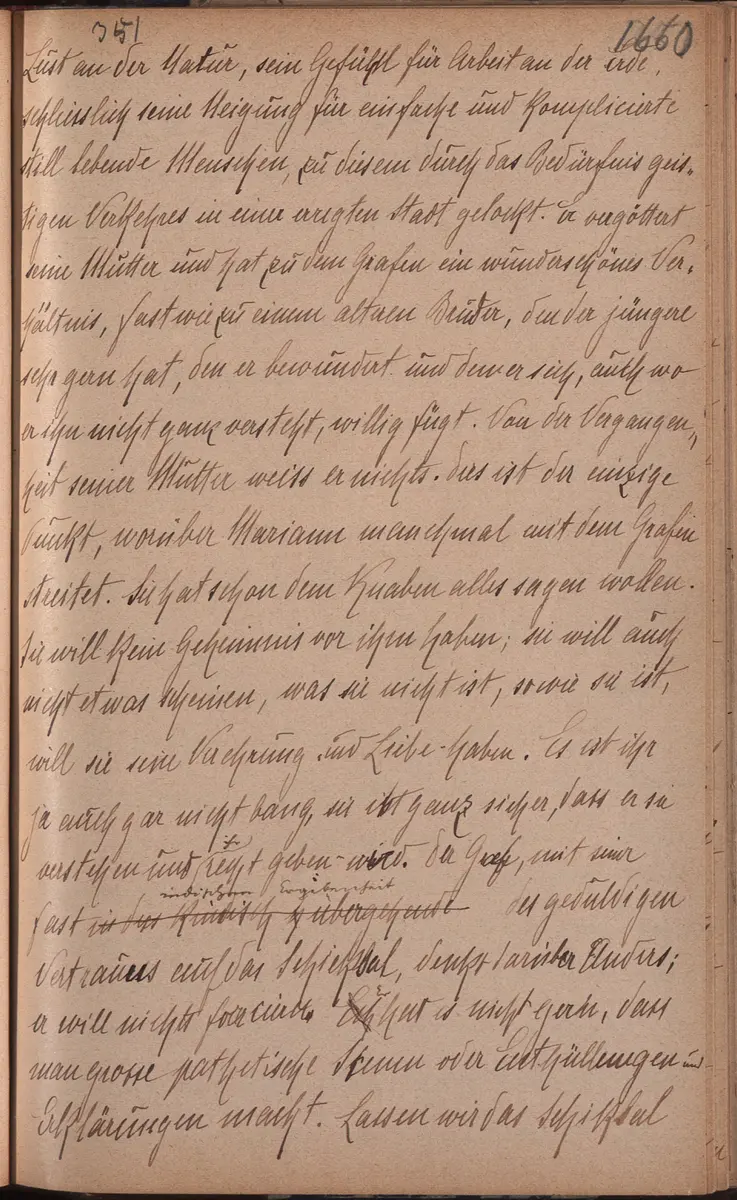 351
1660
Lust an der Natur, sein Gefühl für Arbeit an der erde,
schliesslich seine Neigung für einfache und Komplicierte
still lebende Menschen, zu diesem durch das Bedürfnis geis-
tigen Verkehres in einer erregten Stadt gelockt. Er vergöttert
seine Mutter und hat zu dem Grafen ein wunderschönes Ver-
hältnis, fast wie zu einem älteren Bruder, den der jüngere
sehr gern hat, den er bewundert und dem er sich, auch wo
er ihn nicht ganz versteht, willig fügt. Von der Vergangen-
heit seiner Mutter weiss er nichts. Dies ist der einzige
Punkt, worüber Mariann manchmal mit dem Grafen
streitet. Sie hat schon dem Knaben alles sagen wollen.
Sie will kein Geheimnis vor ihm haben; sie will auch
nicht etwas scheinen, was sie nicht ist, so wie sie ist,
will sie seine Verehrung und Liebe haben. Es ist ihr
ja auch gar nicht bang, sie ist ganz sicher, dass er sie
verstehen und ihr recht geben wird. Der Graf, mit seiner
indischen Ergebenheit
fast in das Kindisch übergehende des geduldigen
Vertrauens auf das Schicksal, denkt darüber Anders;
er will nichts forcieren. hat es nicht gern, dass
man grosse pathetische Scenen oder Enthüllungen und
Erklärungen macht. Lassen wir das Schiksal